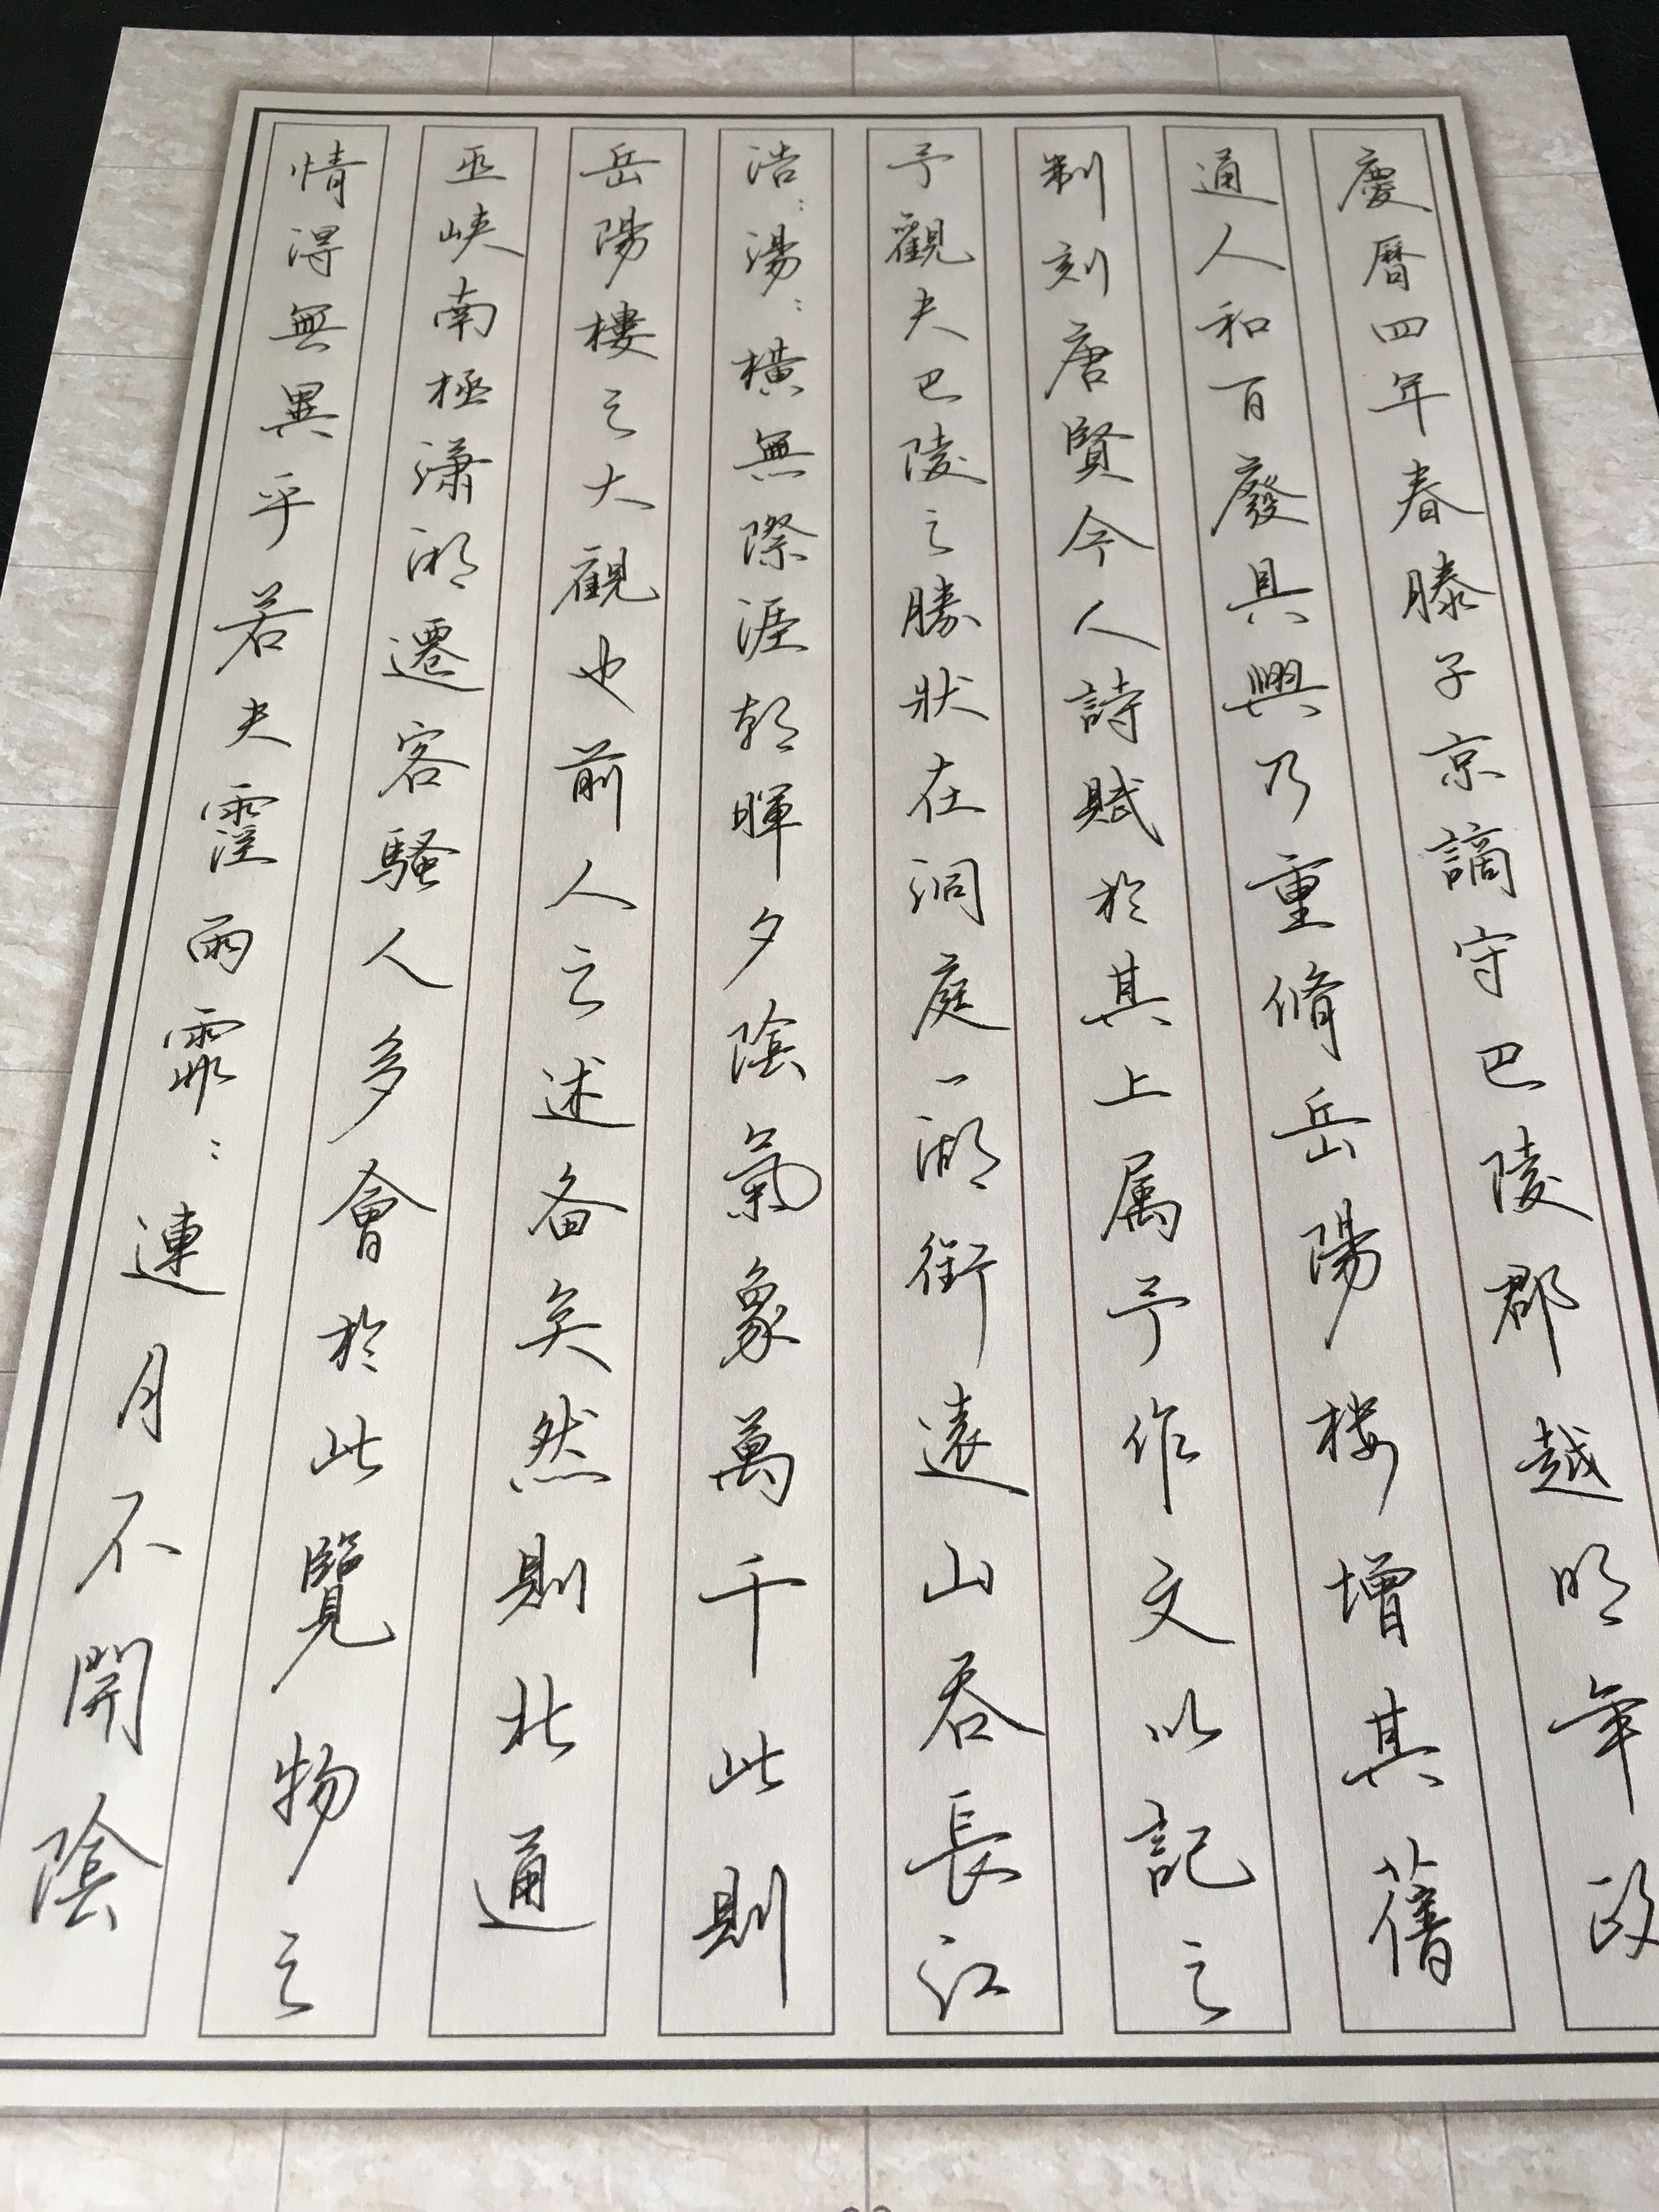 慶曆四年春滕子京謫守巴陵郡越明年政
通人和百廢具興乃重脩岳陽楼增其舊
制刻唐賢今人詩賦於其上属予作文以記之
予觀夫巴陵之勝狀在洞庭一湖銜遠山吞長江
浩〻湯〻橫無際涯朝暉夕陰氣象萬千此則
岳陽樓之大觀也前人之述备矣然則北通
巫峽南極瀟湘遷客騷人多會於此覽物之
情得無異乎若夫霪雨霏〻連月不開陰